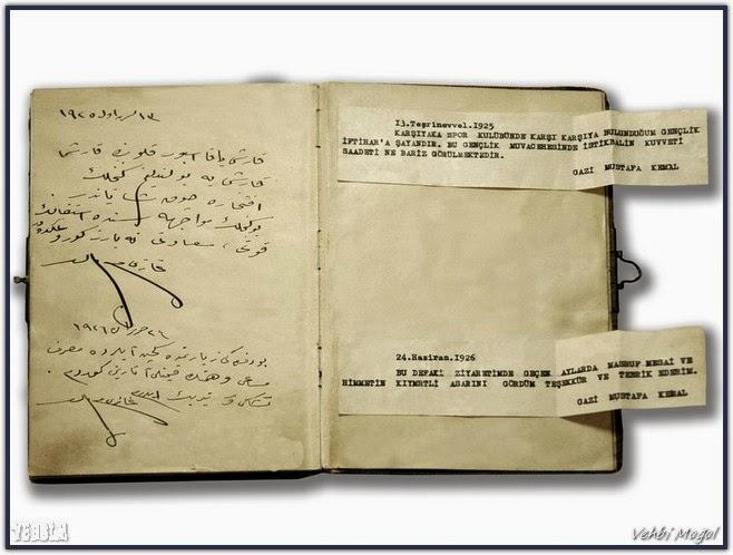 ١٩٢٥
قارشی یاقا سپور قلوبنده قارشی
قارشی یه بولندیغم کنجلك
افتخاره شایاندر
بو کنجلك مواجهه سنده استقبالك
قوتی، سعادتی نه بارز کورولمکده در
غازی
حزیران ١٩٢٦
بو دفعه کی زیارتمده کچن آیلرده مصرف
مساعی و همتك قیمتلی آثارینی کوردم
تشکر و تبریك ایدرم غازی
I3.Teşrinevvel.I925
KARŞIYAKA SPOR KULÜBÜNDE KARŞI KARŞIYA BULUNDUĞUM GENÇLİK
İFTİHAR'A ŞAYANDIR. BU GENÇLİK MUVACEHESİNDE İSTİKBALİN KUVVETİ
SAADETİ NE BARİZ GÖRÜLMEKTEDİR.
GAZİ MUSTAFA KEMAL
24.Haziran.I926
BU DEFAKİ ZİYARETİMDE GEÇEN AYLARDA MASRUF MESAİ VE
HİMMETİN KIYMETLİ ASARINI GÖRDÜM TEŞEKKÜR VE TEBRİK EDERİM.
GAZİ MUSTAFA KEMAL
Vehbi Moğol